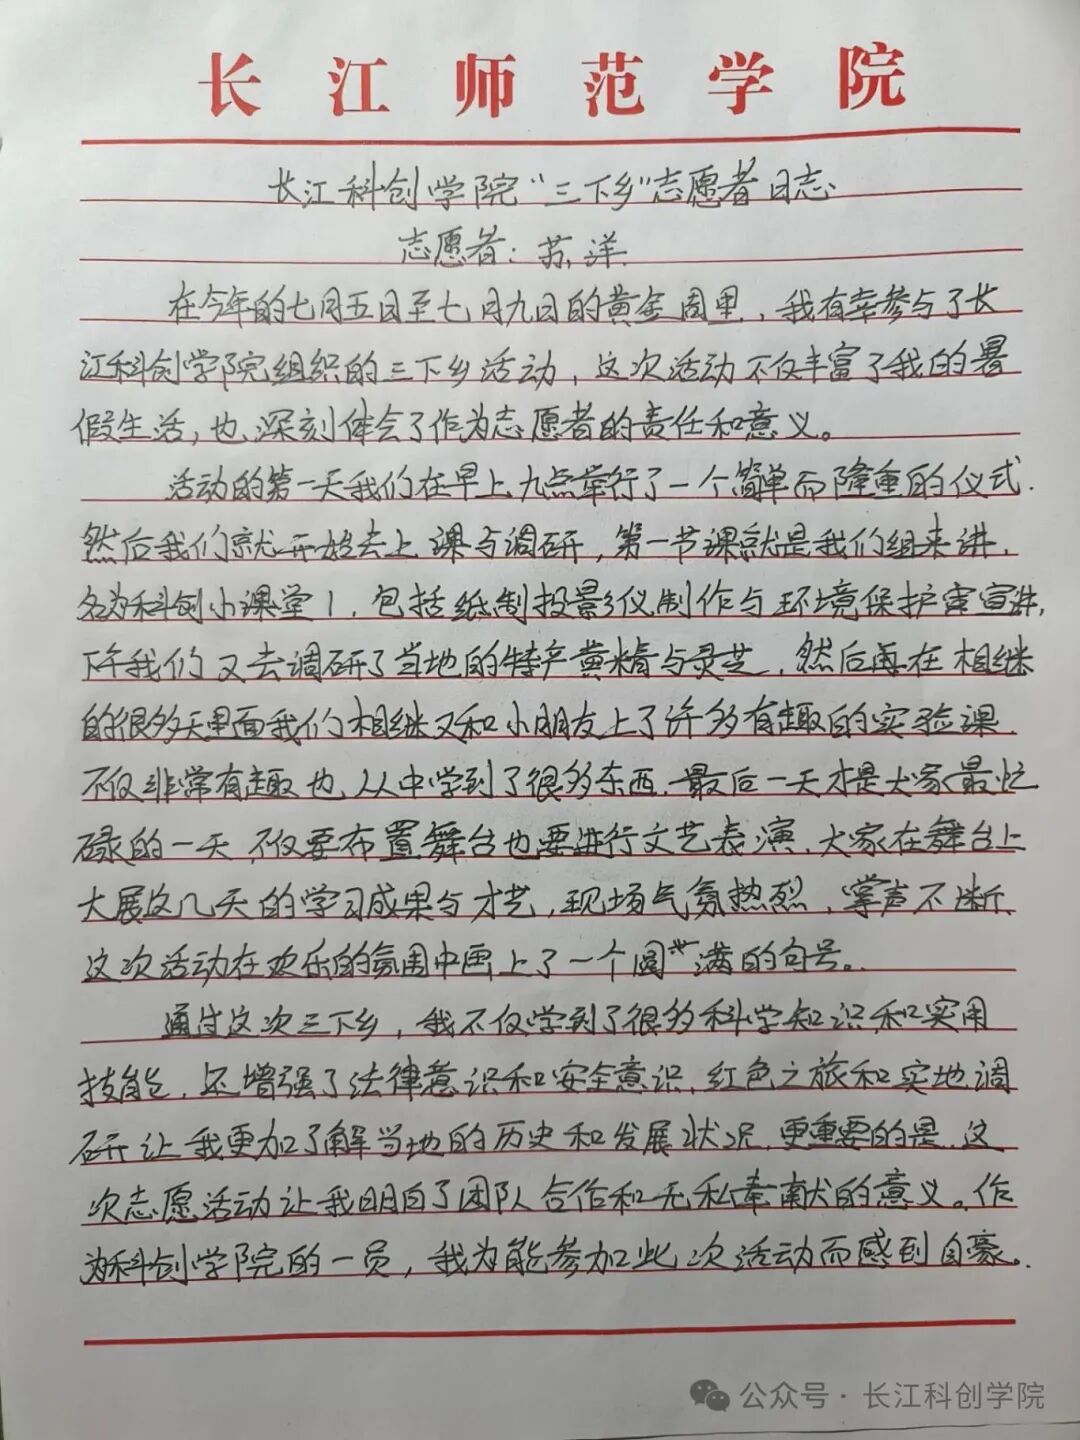 长江师范学院
长江科创学院“三下乡”志愿者日志
志愿者：苏洋.
在今年的七月五日至七月九日的黄金周里，我有幸参与了长
江科创学院组织的三下乡活动，这次活动不仅丰富了我的暑
假生活，也深刻体会了作为志愿者的责任和意义。
活动的第一天我们在早上九点举行了一个简单而隆重的仪式.
然后我们就开始去上课与调研，第一节课就是我们组来讲，
名为科创小课堂1，包括纸制投影仪制作与环境保护宣讲，
下午我们又去调研了当地的特产黄精与灵芝，然后再在相继
的很多天里面我们相继又和小朋友上了许多有趣的实验课.
不仅非常有趣也从中学到了很多东西.最后一天才是大家最忙
碌的一天不仅要布置舞台也要进行文艺表演.大家在舞台上
大展这几天的学习成果与才艺，现场气氛热烈，掌声不断.
这次活动在欢乐的氛围中画上了一个圆满的句号。
通过这次三下乡，我不仅学到了很多科学知识和实用
技能，还增强了法律意识和安全意识.红色之旅和实地调
研让我更加了解当地的历史和发展状况.更重要的是这
次志愿活动让我明白了团队合作和无私奉献的意义。作
为科创学院的一员，我为能参加此次活动而感到自豪。
公众号·长江科创学院